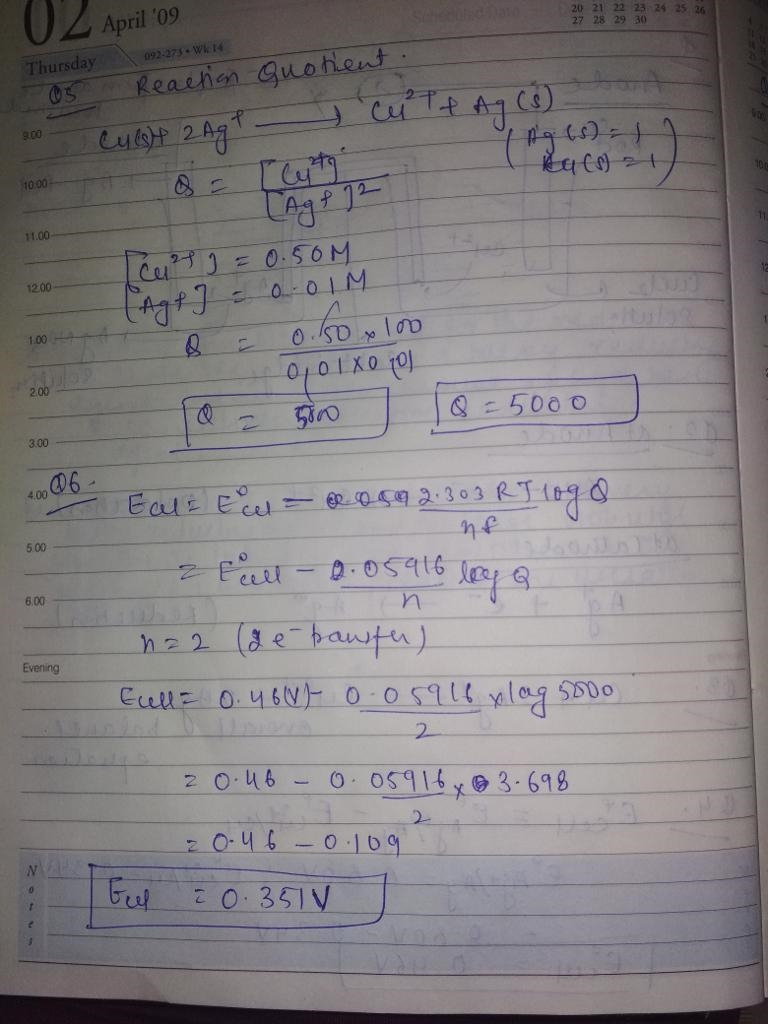 02 April '09
Scheduled Date
20 21 22 23 24 25 26
27 28 29 30
Thursday 092-273 • Wk 14
Q5 Reaction Quotient.
9.00 Cu(s) + 2Ag+ ⟶ Cu2+ + Ag (s)
(Ag (s) = 1
Cu(s) = 1)
10.00 Q = [Cu2+] / [Ag+]2
11.00
[Cu2+] = 0.50M
12.00 [Ag+] = 0.01M
1.00 Q = 0.50 x 100 / 0.01 x 0.01
2.00
Q = 500 Q = 5000
3.00
4.00 Q6.
Ecell = E°cell - 2.303 RT / nf log Q
5.00
= E°cell - 0.05916 / n log Q
6.00
n = 2 (2e- transfer)
Evening
Ecell = 0.46(V) - 0.05916 / 2 x log 5000
= 0.46 - 0.05916 / 2 x 3.698
= 0.46 - 0.109
Ecell = 0.351V
Notes